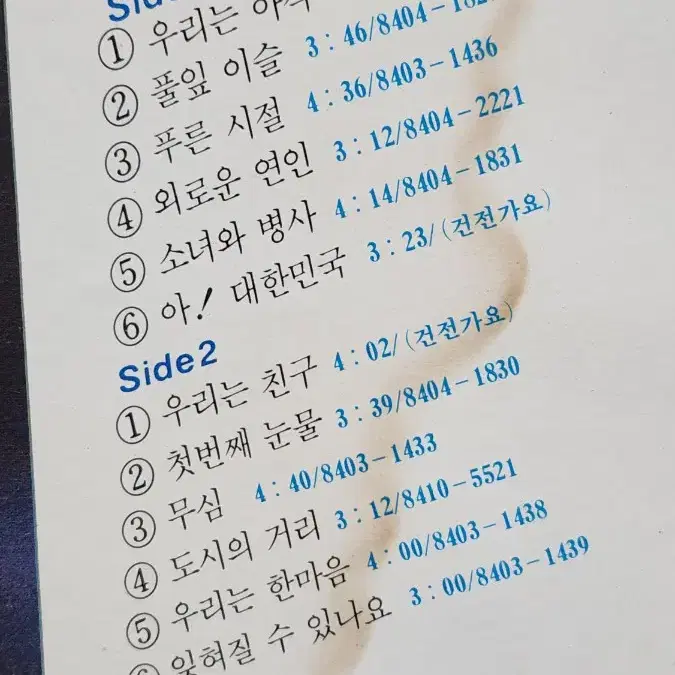 ① 우리는
② 풀잎 이슬 3 : 46/8404-
③ 푸른 시절 4 : 36/8403-1436
④ 외로운 연인 3 : 12/8404-2221
⑤ 소녀와 병사 4 : 14/8404-1831
⑥ 아! 대한민국 3 : 23/(건전가요)
Side 2
① 우리는 친구 4 : 02/(건전가요)
② 첫번째 눈물 3 : 39/8404-1830
③ 무심 4 : 40/8403-1433
④ 도시의 거리 3 : 12/8410-5521
⑤ 우리는 한마음 4 : 00/8403-1438
⑥ 잊혀질 수 있나요 3 : 00/8403-1439